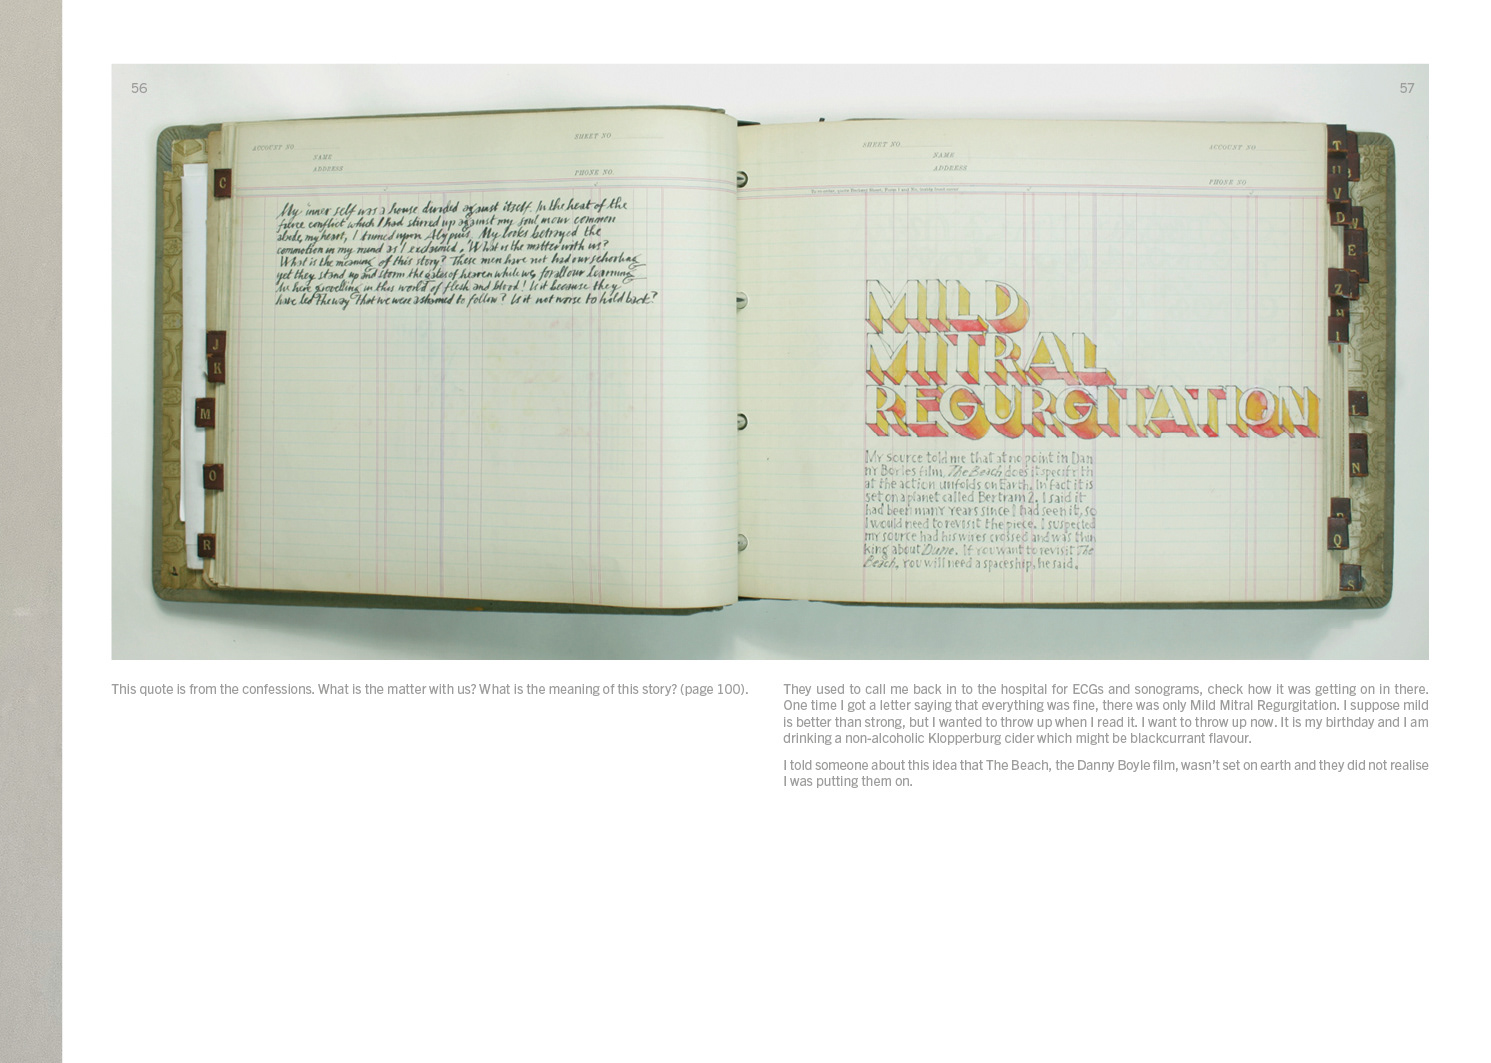 56
57
ACCOUNT NO.
SHEET NO.
NAME
ADDRESS
PHONE NO.
C
J
K
M
O
R
My inner self was a house divided against itself. In the heat of the
fierce conflict which I had stirred up against my soul in our common
abode, my heart, I turned upon Alypius. My looks betrayed the
commotion in my mind as I exclaimed, 'What is the matter with us?
What is the meaning of this story? These men have not had our schooling
yet they stand up and storm the gates of heaven while we, for all our learning
lie here grovelling in this world of flesh and blood! Is it because they
have led the way that we were ashamed to follow? Is it not worse to hold back?
SHEET NO.
ACCOUNT NO.
NAME
ADDRESS
PHONE NO.
MILD
MITRAL
REGURGITATION
My source told me that at no point in Dan
ny Boyles film, The Beach does it specify th
at the action unfolds on Earth. In fact it is
set on a planet called Bertram 2. I said it
had been many years since I had seen it, so
I would need to revisit the piece. I suspected
my source had his wires crossed and was thin
king about Dune. If you want to revisit The
Beach, you will need a spaceship, he said.
T
U
V
D
E
Z
I
L
N
Q
S
This quote is from the confessions. What is the matter with us? What is the meaning of this story? (page 100).
They used to call me back in to the hospital for ECGs and sonograms, check how it was getting on in there.
One time I got a letter saying that everything was fine, there was only Mild Mitral Regurgitation. I suppose mild
is better than strong, but I wanted to throw up when I read it. I want to throw up now. It is my birthday and I am
drinking a non-alcoholic Klopperburg cider which might be blackcurrant flavour.
I told someone about this idea that The Beach, the Danny Boyle film, wasn't set on earth and they did not realise
I was putting them on.